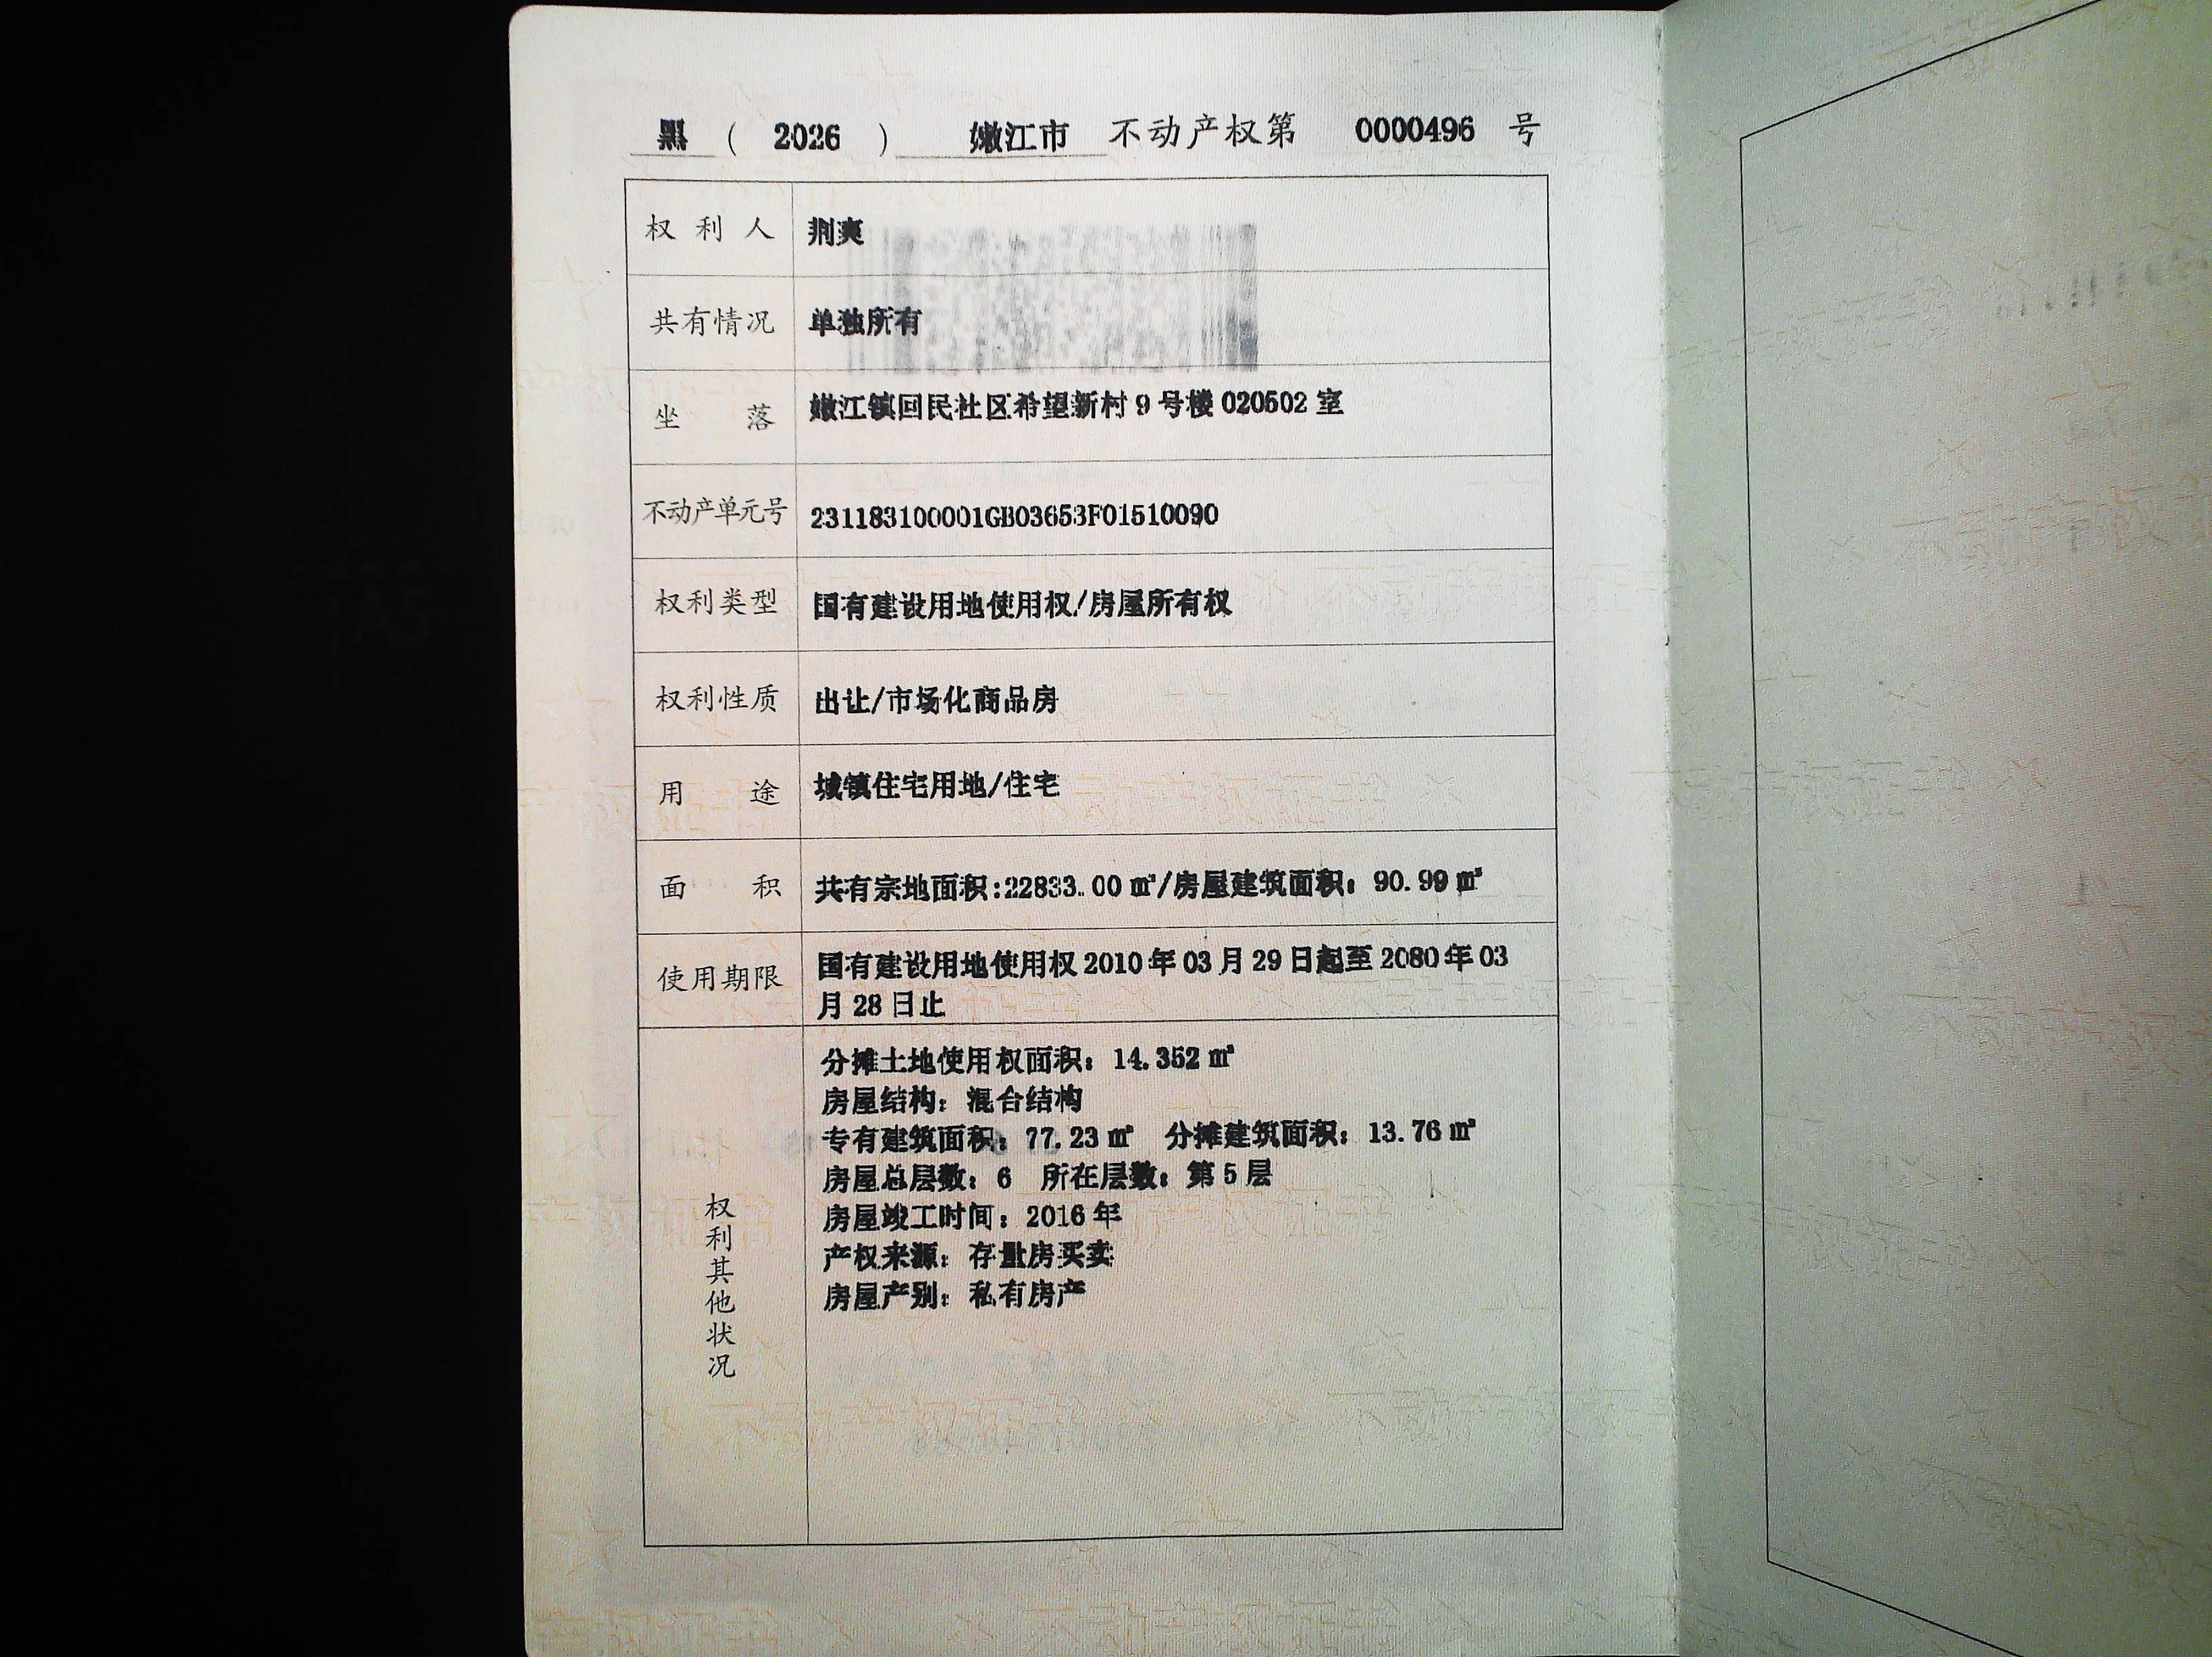 黑（2026）嫩江市不动产权第0000496号
权利人 荆爽
共有情况 单独所有
坐落 嫩江镇回民社区希望新村9号楼020502室
不动产单元号 231183100001GB03653F01510090
权利类型 国有建设用地使用权/房屋所有权
权利性质 出让/市场化商品房
用途 城镇住宅用地/住宅
面积 共有宗地面积:22833.00㎡/房屋建筑面积：90.99㎡
使用期限 国有建设用地使用权2010年03月29日起至2080年03
月28日止
权利其他状况
分摊土地使用权面积：14.352㎡
房屋结构：混合结构
专有建筑面积：77.23㎡ 分摊建筑面积：13.76㎡
房屋总层数：6 所在层数：第5层
房屋竣工时间：2016年
产权来源：存量房买卖
房屋产别：私有房产